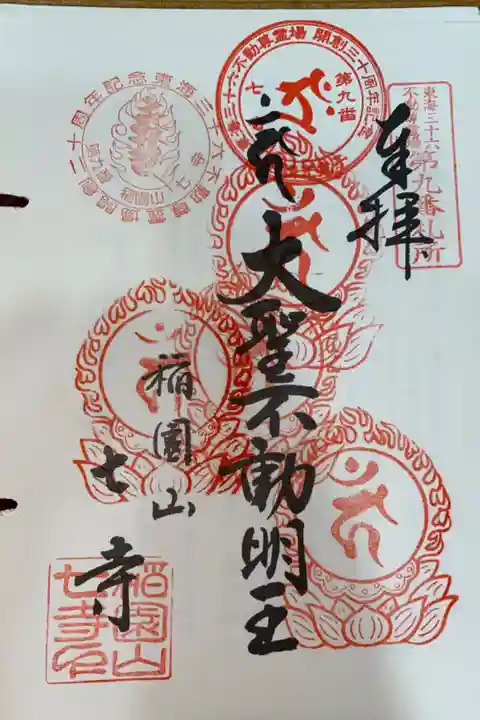 奉拝
東海三十六
不動尊霊場
第九番札所
東海三十六不動尊霊場 開創三十周年記念
第九番
大聖不動明王
東海三十六不動尊霊場開創二十周年記念
稲園山
七寺
稲園山
七寺印